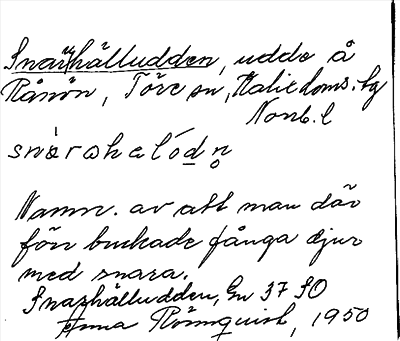 Snarhälludden, udde å
Rånön, Töre sn, Nederkalix doms. hg
Norrb. l
snàrahalódn̥
Namn. av att man där
förr brukade fånga djur
med snara.
Snarhälludden, Gn 37 SO
Anna Römquist, 1950